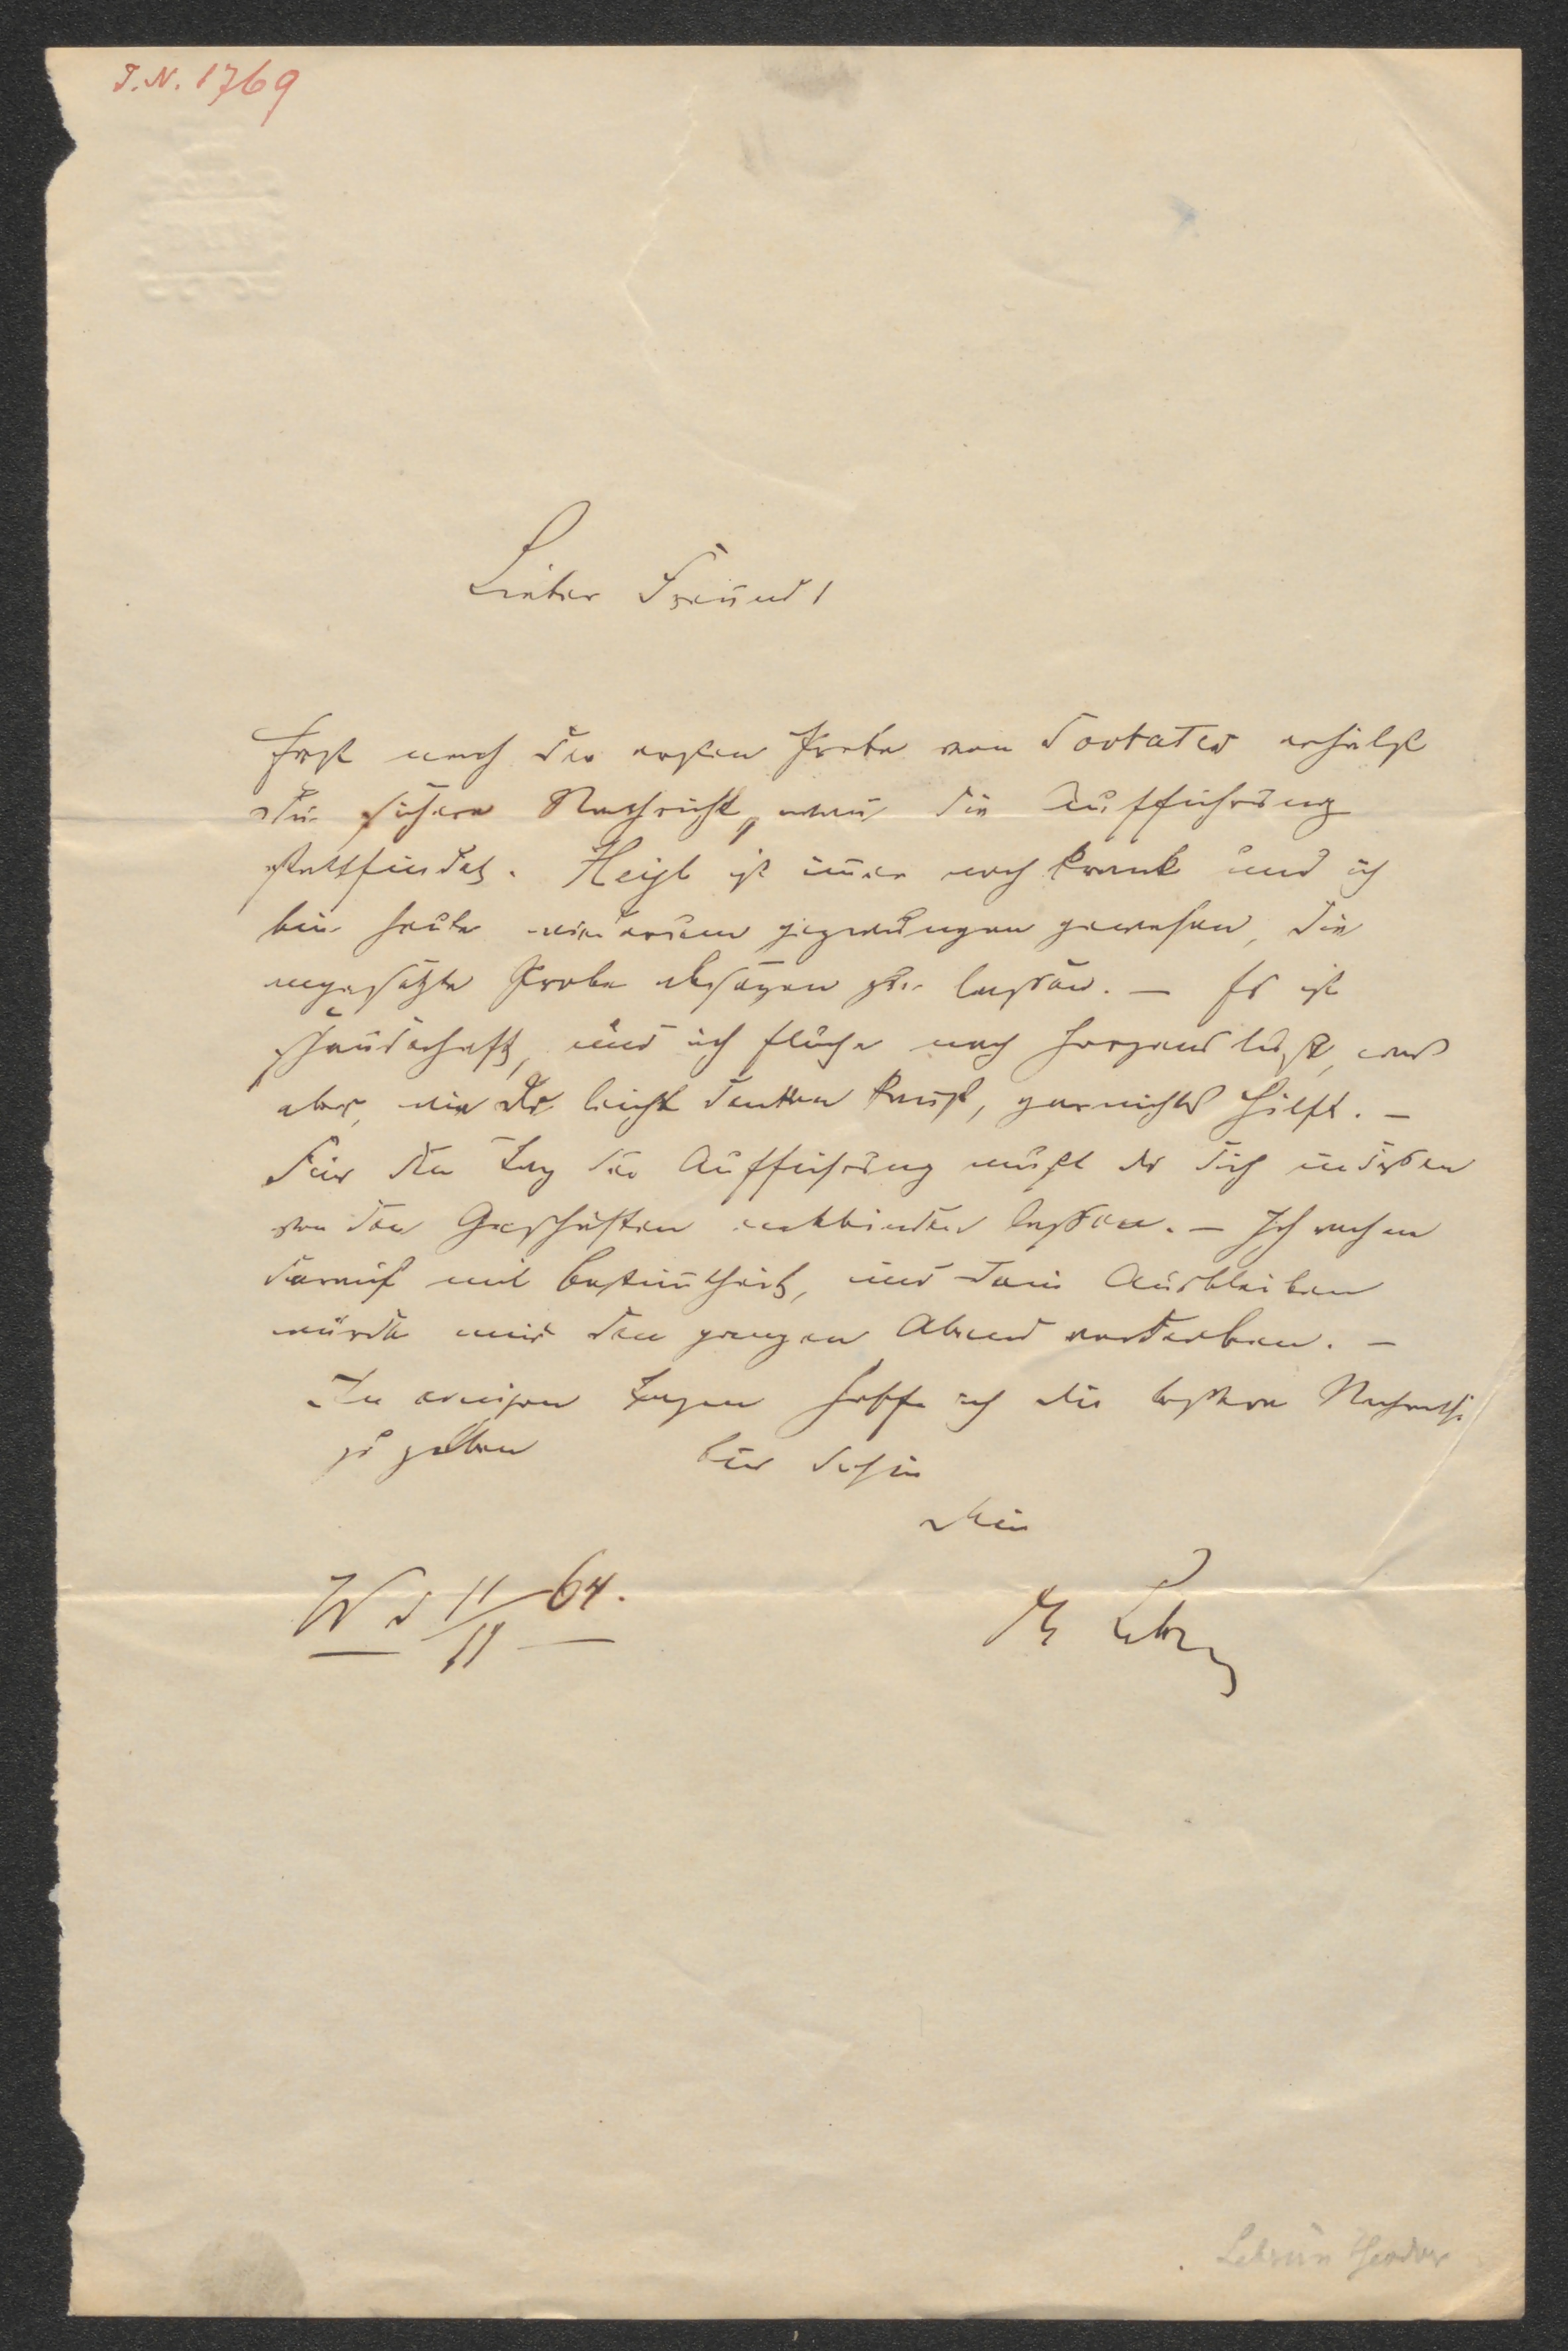 I.N. 1769
Lieber Freund!
Erst nach der ersten Probe von erhälst
Du sichere Nachricht, wann die Aufführung
stattfindet. Heigl ist im̅er noch krank und ich
bin heute wiederum gezwungen gewesen, die
angesetzte Probe absagen zu lassen. — Es ist
schauderhaft, und ich fluche nach Herzenslust, was
aber, wie Du leicht denken kannst, garnichts hilft. —
Für den Tag der Aufführung mußt Du Dich indessen
von den Geschäften entbinden lassen. — Ich rechne
darauf mit Bestim̅theit, und Dein Ausbleiben
würde mir den ganzen Abend verderben. —
In einigen Tagen hoffe ich Dir bessere Nachricht
zu geben bis dahin
Dein
W d 11/11 64.
Th Lebrun
Lebrün Theodor